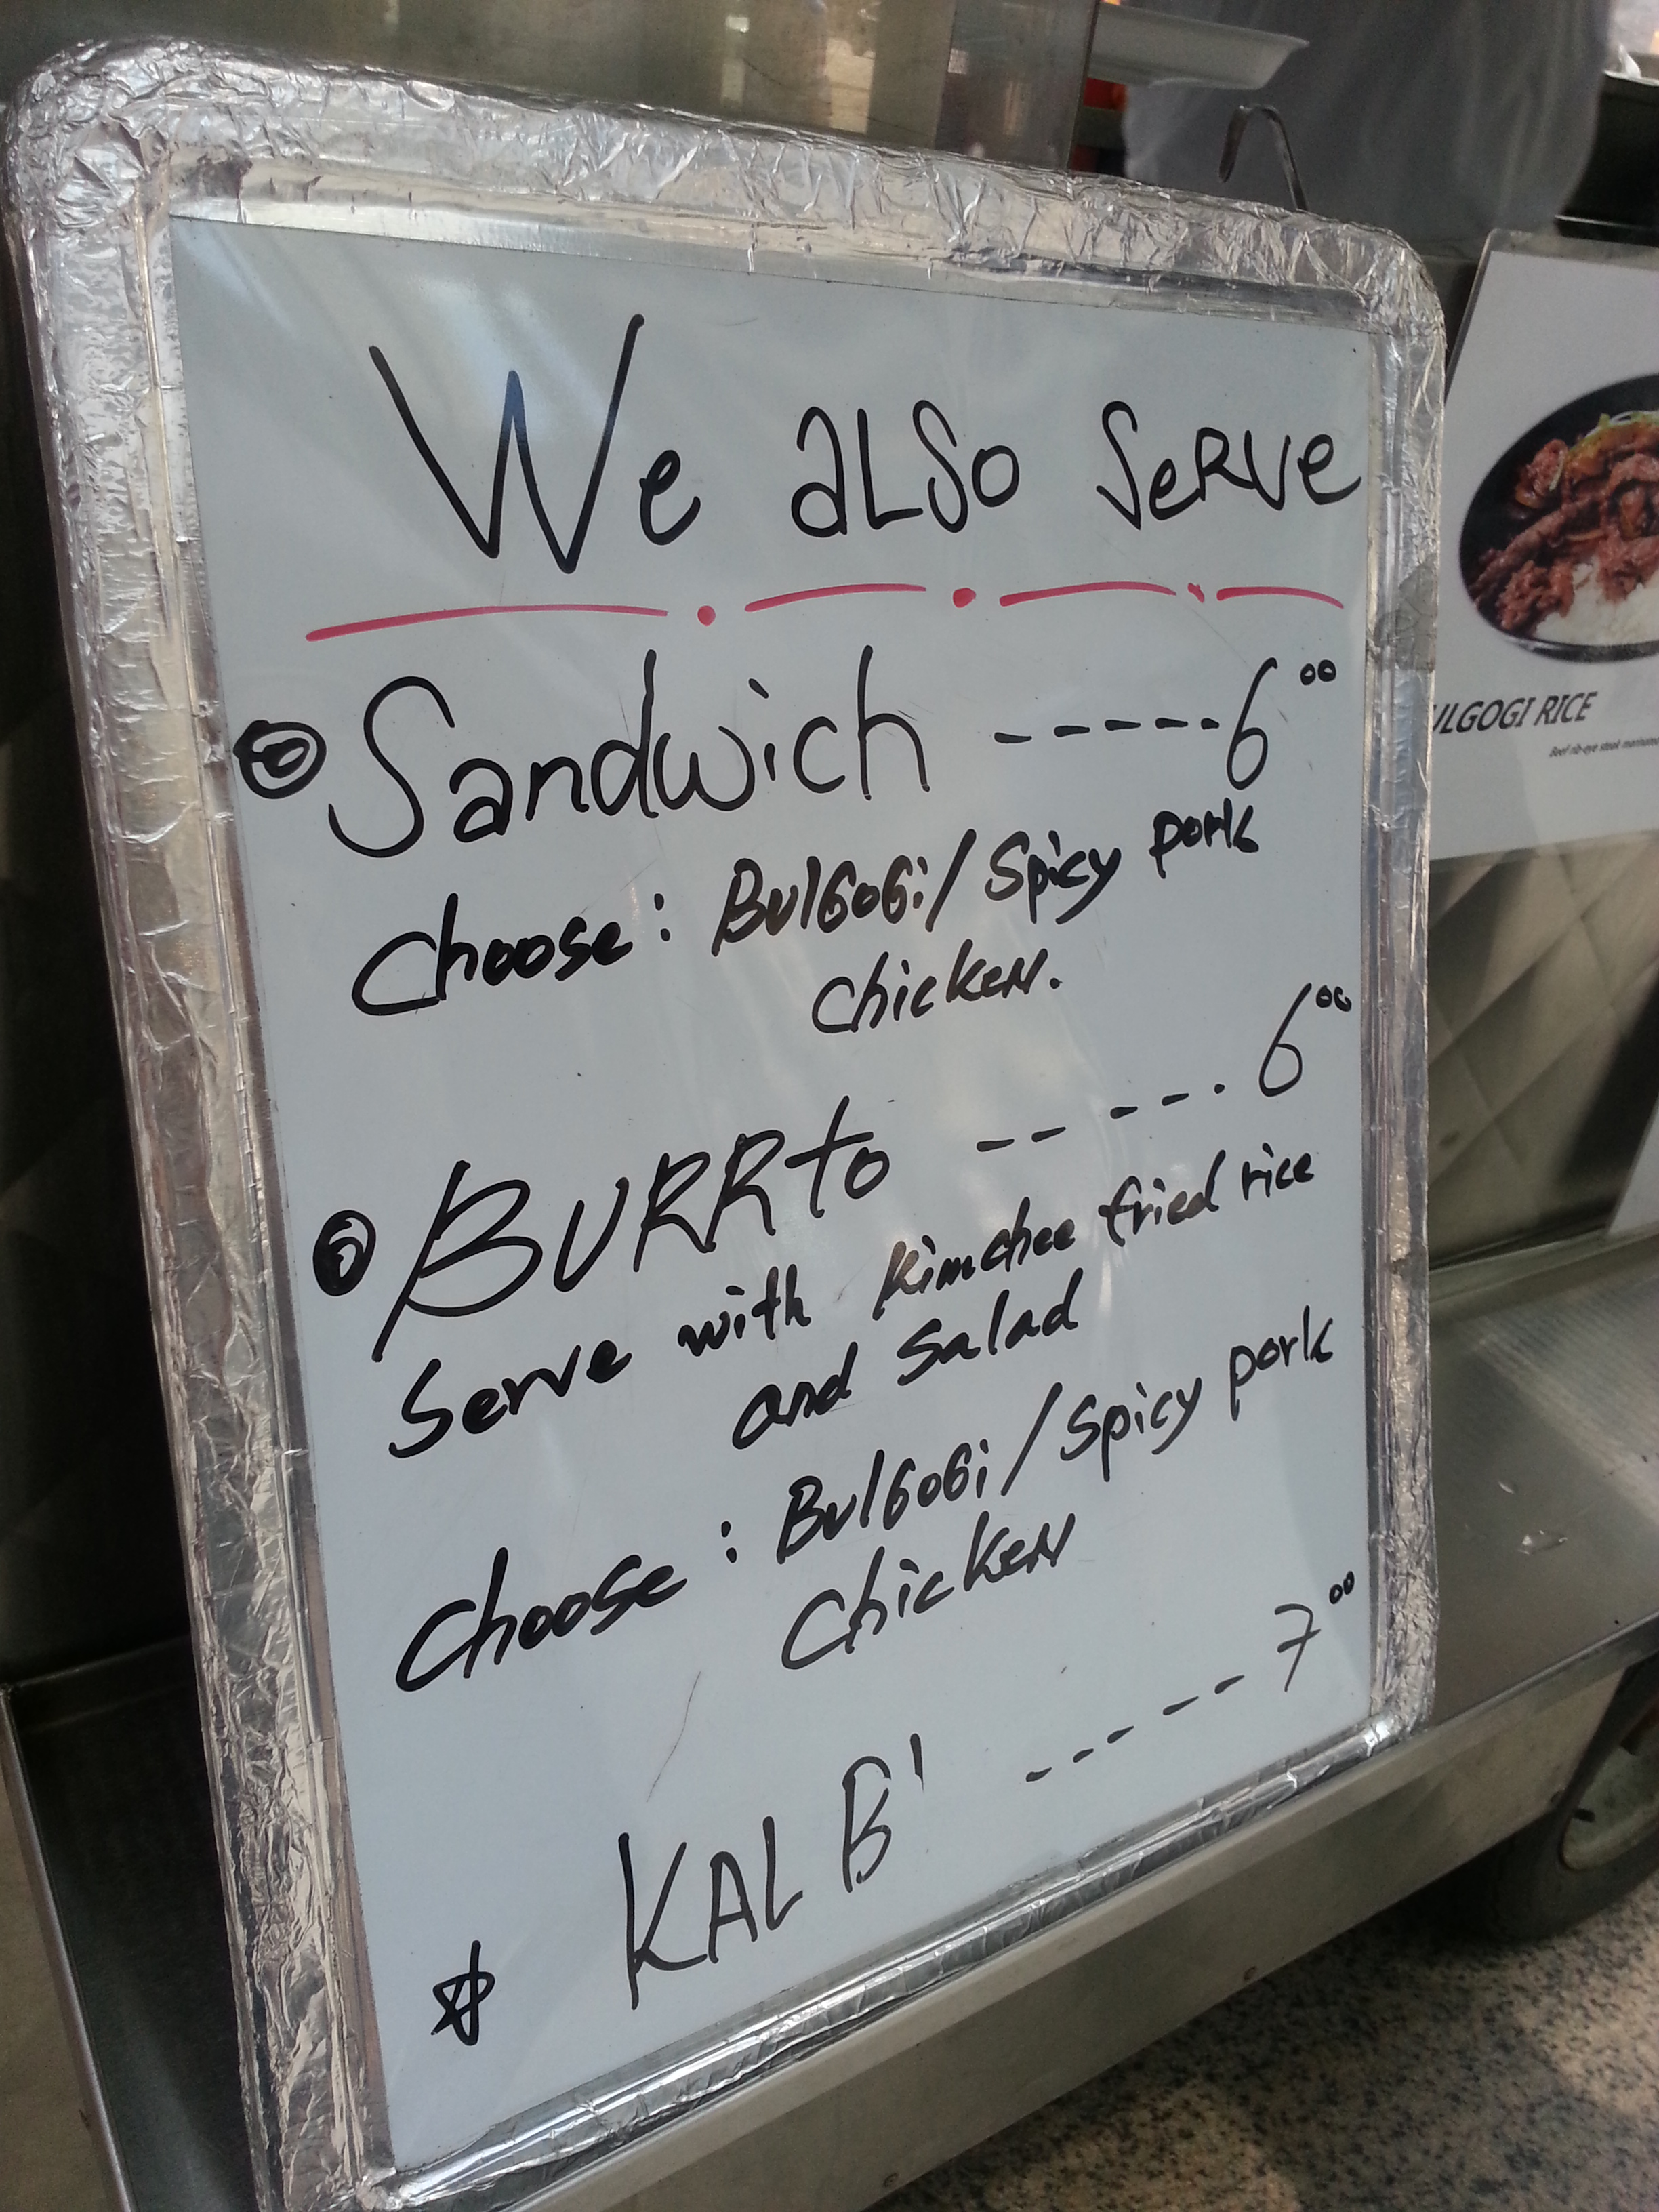 We aLSo SeRVe
Sandwich ----- 6 00
Choose: BulGoGi / Spicy pork
chicken.
BURRto -- ---. 6 00
Serve with kimchee fried rice
and Salad
Choose: BulGoGi / Spicy pork
Chicken
$ KALBI ------ 7 00
ULGOGI RICE
Beef rib-eye steak